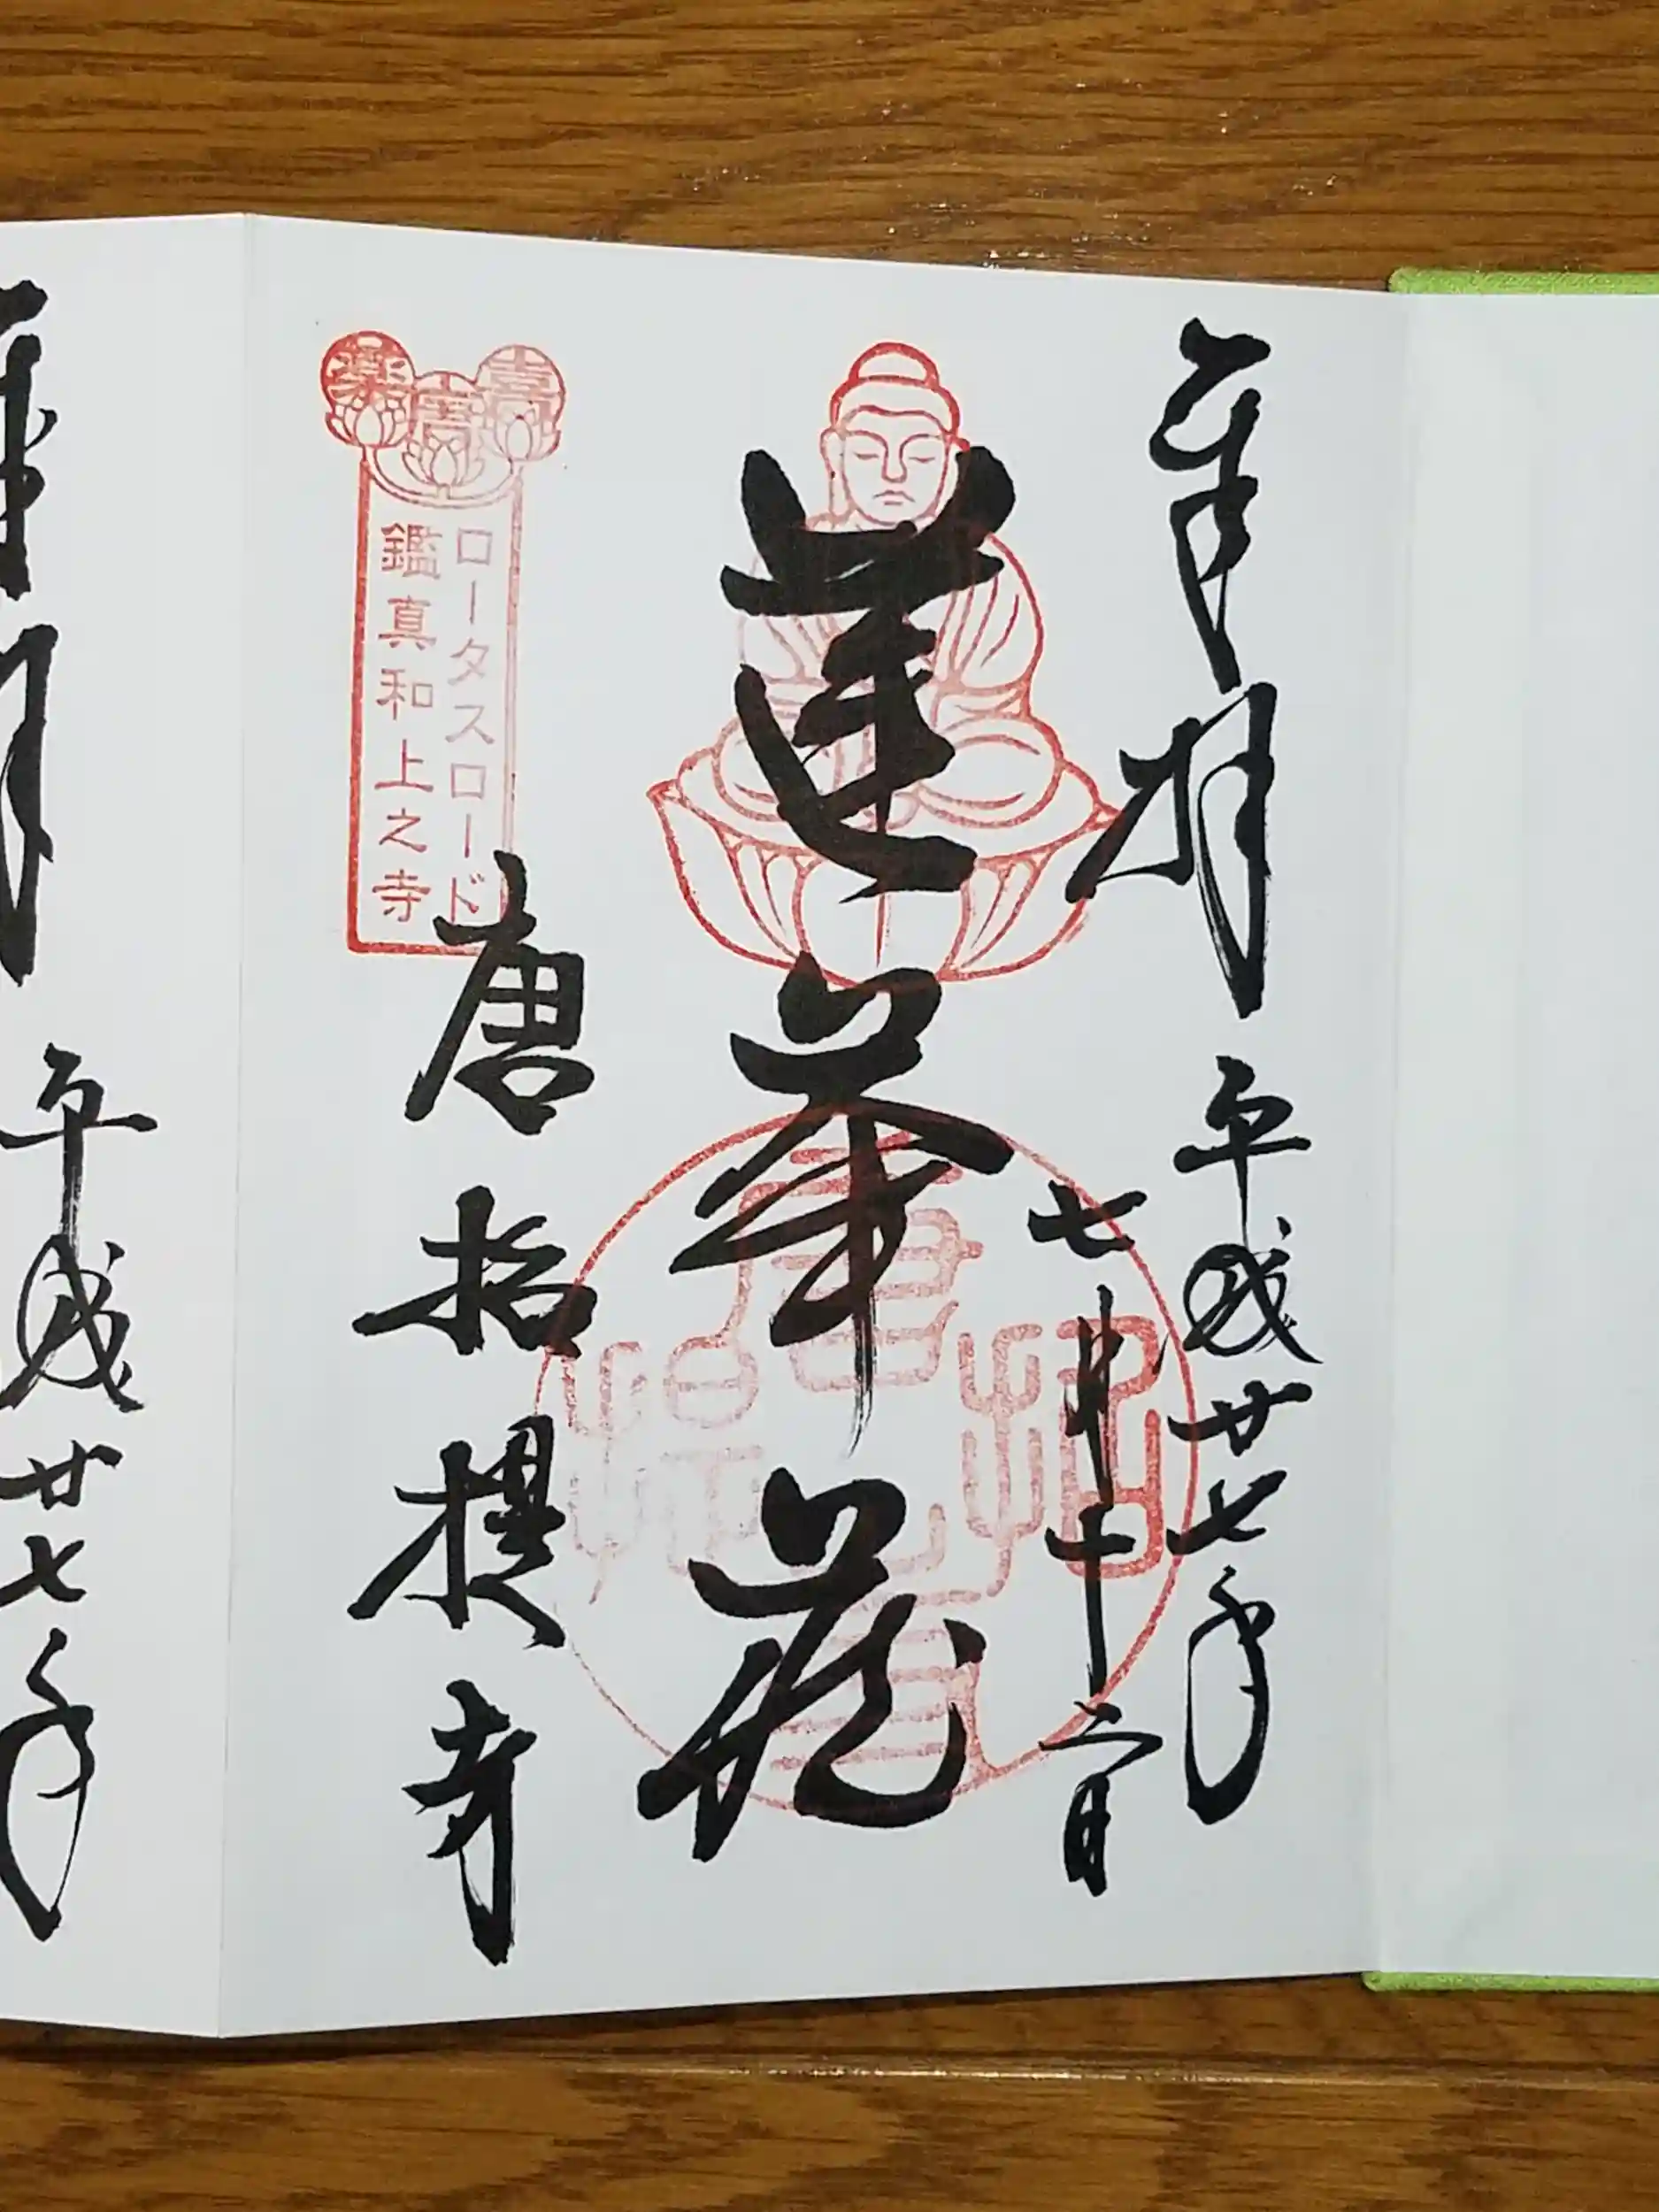 奉拝 平成廿七年
七月十二日
蓮華蔵
唐招提寺
喜
唐
薬
ロータスロード
鑑真和上之寺
平成廿七年